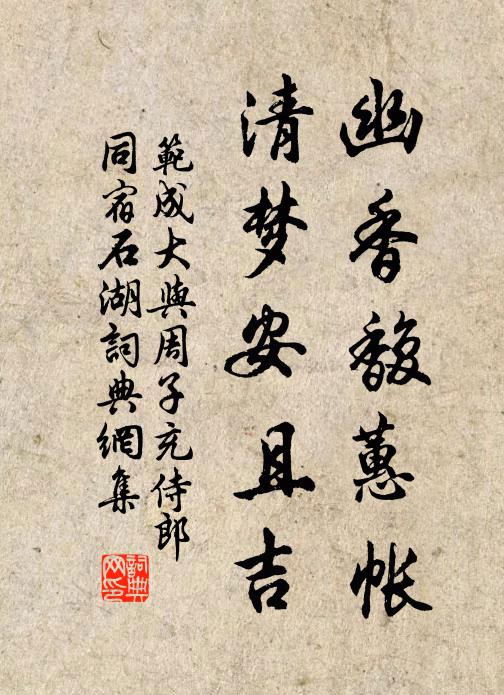 幽香馥蕙帐
清梦安且吉
範成大與周子充侍郎
同宿石湖詞典網集
詞典网印